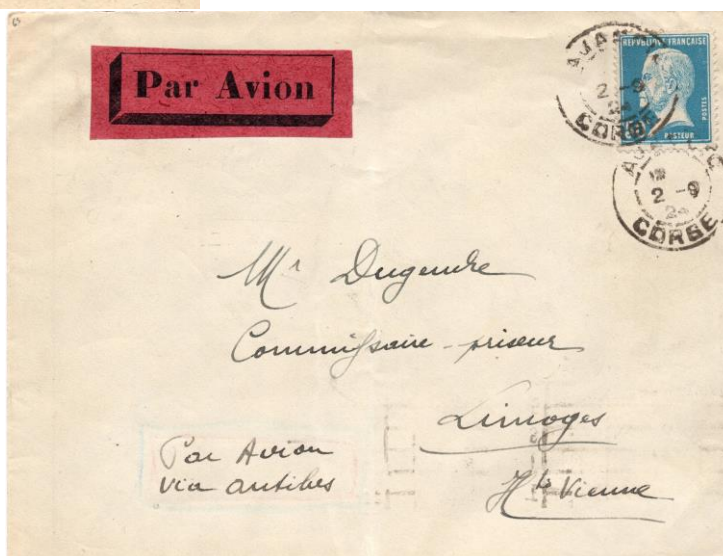 Par Avion
REPUBLIQUE FRANÇAISE
POSTES
PASTEUR
2 -9
24
CORSE
2 -9
24
CORSE
Mr Dugendre
Commissaire-priseur
Limoges
Hte Vienne
Par Avion
via antibes